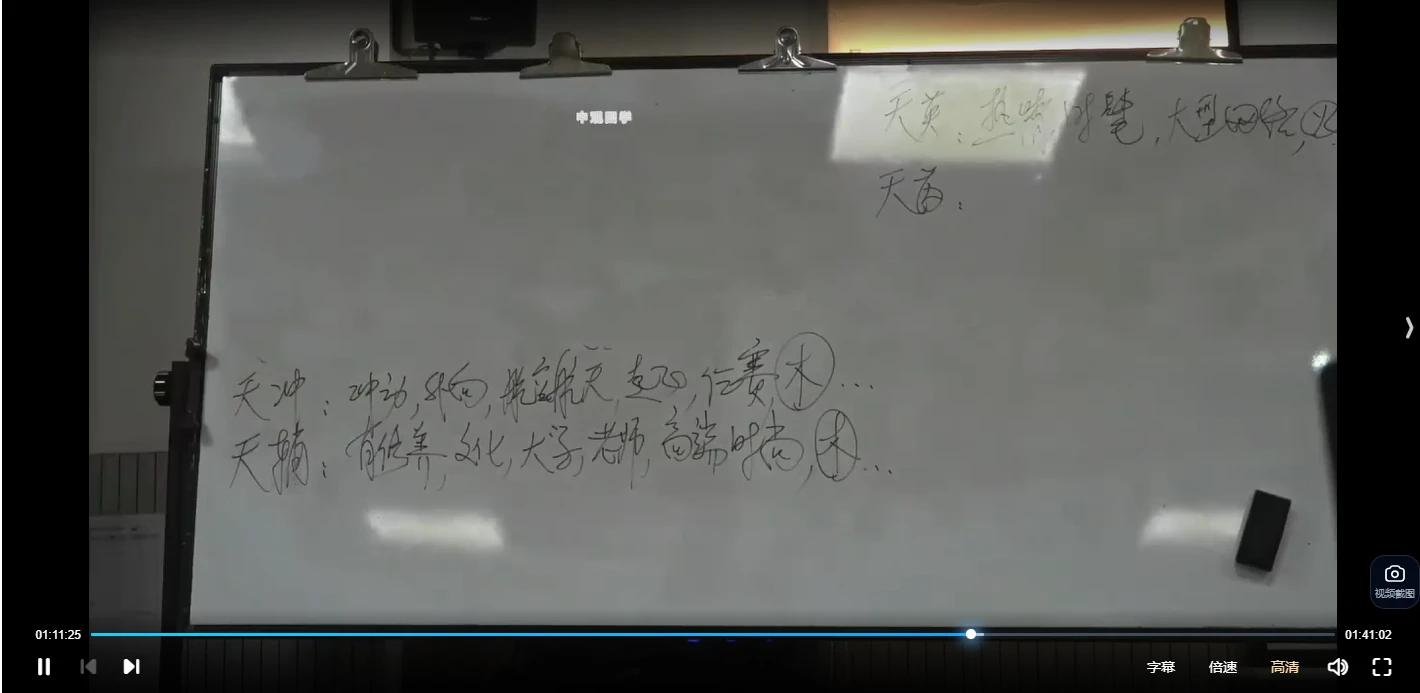 中观国学
天英：热情，时髦，大型网络，火
天芮：
天冲：冲动，外向，航空航天，起飞，仁，赛，木...
天辅：有修养，文化，大学，老师，高端时尚，木...
视频截图
01:11:25
01:41:02
字幕
倍速
高清